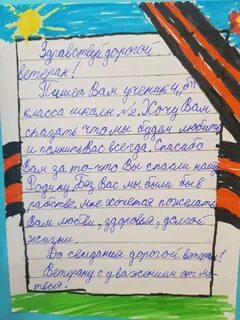 Здравствуй дорогой
ветеран!
Пишет Вам ученик 4
класса школы №2. Хочу Вам
сказать что мы будем любить
и помнить Вас всегда. Спасибо
Вам за то что Вы спасли нашу
Родину. Без Вас мы были бы в
рабстве. Мне хочется пожелать
Вам любви, здоровья, долгой
жизни.
До свидания дорогой ветеран!
Ветерану с уважением от Ма-
твея.